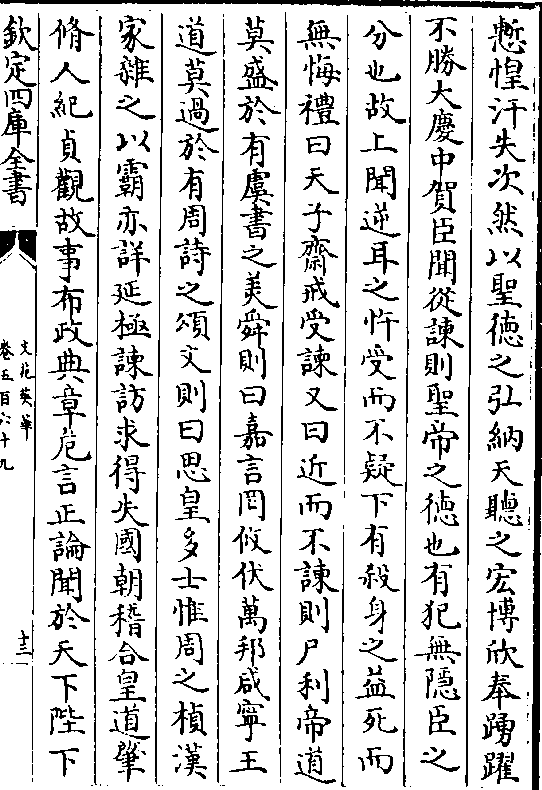 慙惶汗失次然以聖徳之弘納天聽之宏博欣奉踴躍
不勝大慶中賀臣聞從諫則聖帝之徳也有犯無隠臣之
分也故上聞逆耳之忤受而不疑下有殺身之益死而
無悔禮曰天子齋戒受諫又曰近而不諫則尸利帝道
莫盛於有虞書之美舜則曰嘉言罔攸伏萬邦咸寧王
道莫過於有周詩之頌文則曰思皇多士惟周之楨漢
家雜之以霸亦詳延極諫訪求得失國朝稽合皇道肇
脩人紀貞觀故事布政典章危言正論聞於天下陛下
欽定四庫全書
文苑英華
卷五百六十九
十三